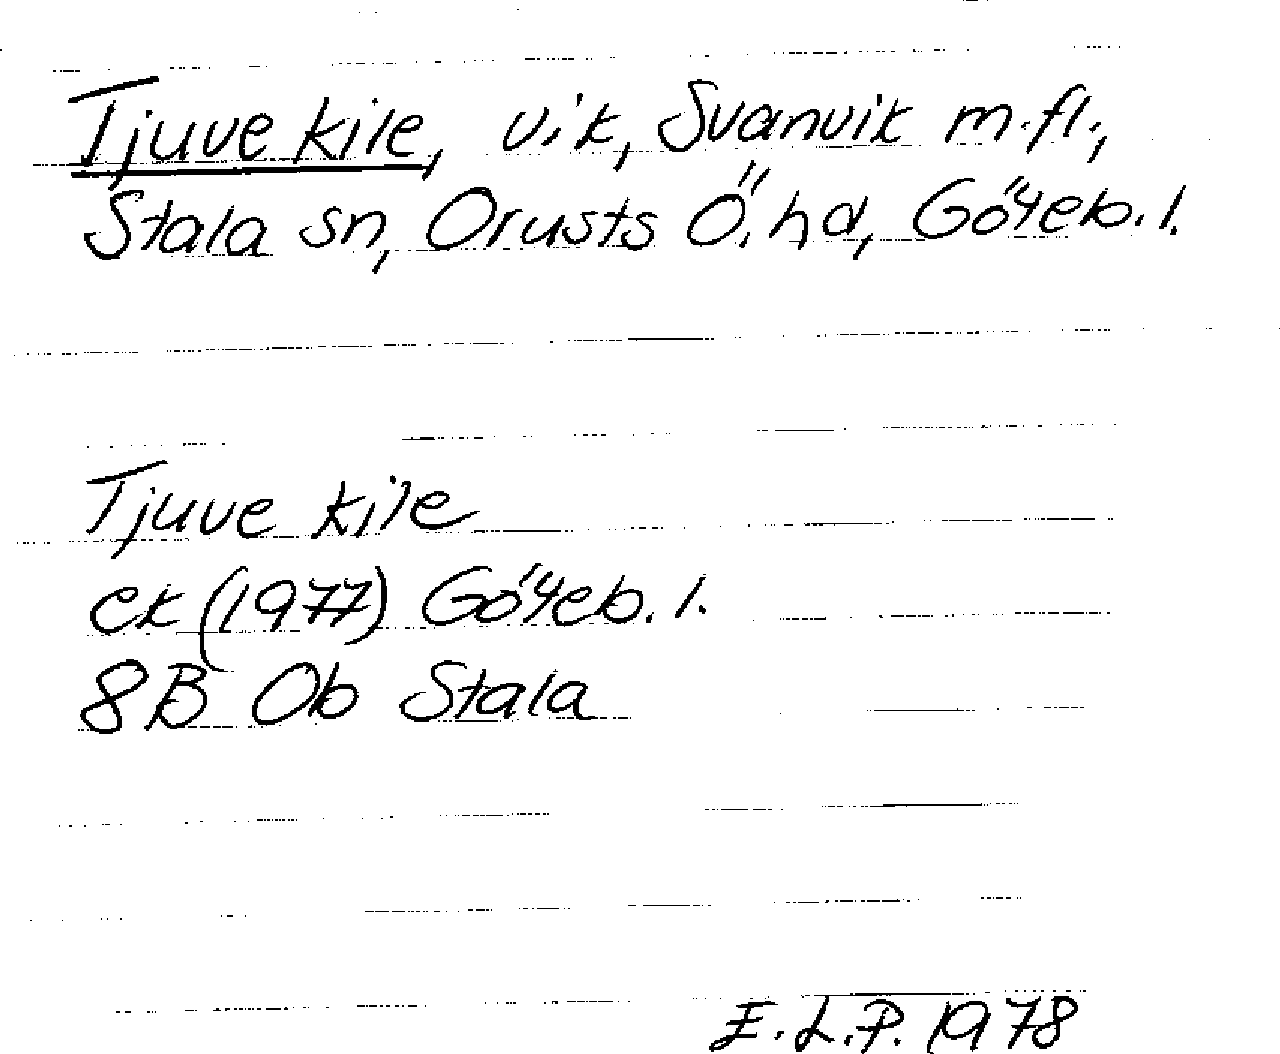 Tjuve kile, vik, Svanvik m.fl.,
Stala sn, Orusts Ö. hd, Göteb. l.
Tjuve kile
ek (1977) Göteb. l.
8B Ob Stala
E.L.P. 1978